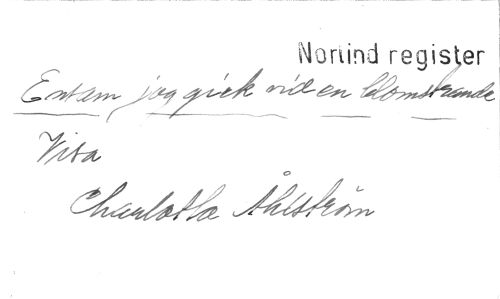 Norlind register
Ensam jag gick vid en blomstrande
Visa
Charlotta Åhlström